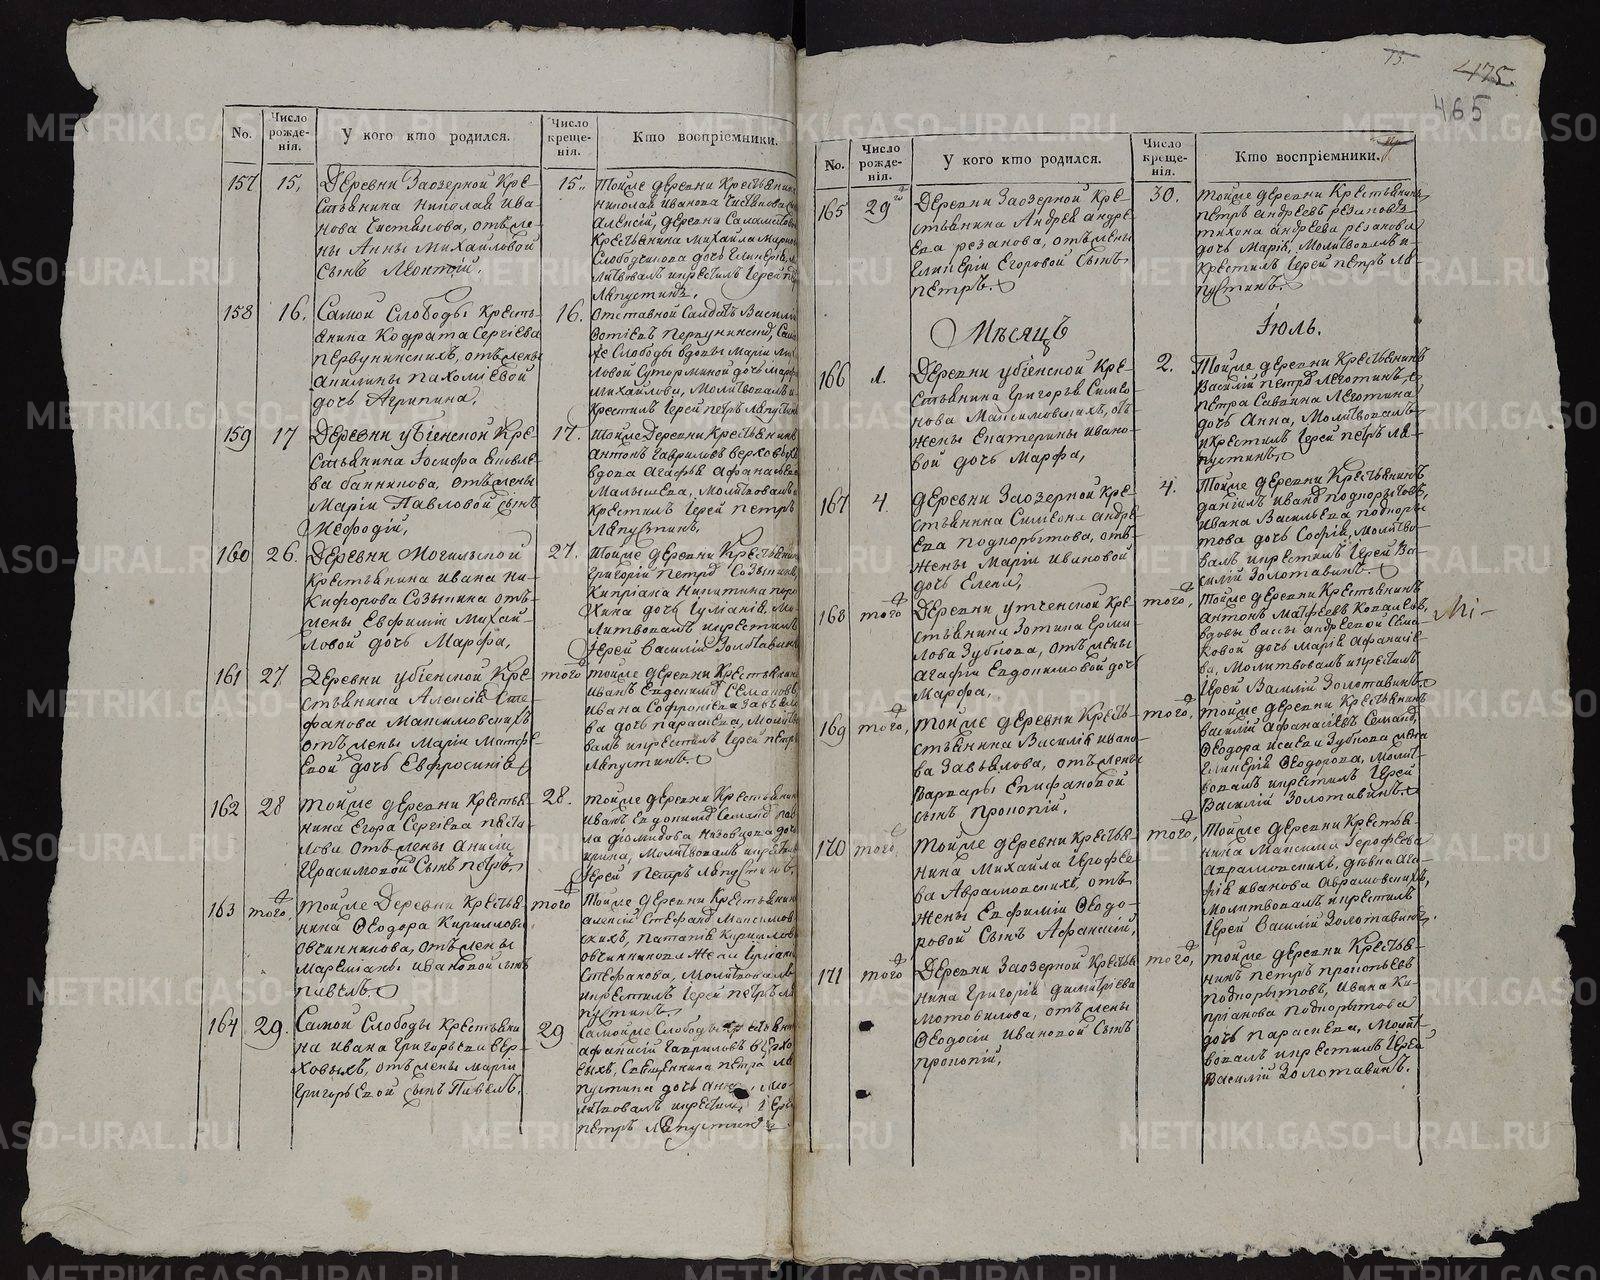 75
475.
465
No.
Число рожде-нія.
У кого кто родился.
Число креще-нія.
Кто воспріемники.
157
15.
Деревни Заозерной Кре-
стьянина Николая Ива-
нова Чистякова, отъ же-
ны Анны Михайловой
сынъ Леонтій.
15.
Тойже деревни Крестьянина
Николая Иванова Чистякова сынъ
Алексій, деревни
Крестьянина Михайла
Слободчикова дочь Гликерія,
Іерей
Ляпустинъ.
158
16.
Самой Слободы Кресть-
янина Кодрата Сергіева
Первушинскихъ, отъ жены
Акилины Пахоміевой
дочь Агрипина.
16.
Отставной Салдатъ Василій
Слободы вдовы Маріи
дочь Марфа
Михайлова, Молитвовалъ и
Крестилъ Іерей Петръ Ляпустинъ
159
17
Деревни убіенской Кре-
стьянина Іосифа Яковле-
ва банникова, отъ жены
Маріи Павловой сынъ
Мефодій,
17.
Тойже Деревни Крестьянинъ
Антонъ Гавриловъ
вдова Агафья Афанасьева
Малышева, Молитвовалъ и
Крестилъ Іерей Петръ
Ляпустинъ.
160
26.
Деревни Могильской
Крестьянина Ивана Ни-
кифорова Созыкина отъ
жены Евфиміи Михай-
ловой дочь Марфа,
27.
Тойже деревни Крестьянинъ
Григорій Петровъ Созыкинъ,
Кипріана Никитина
дочь Іуліанія, Мо-
литвовалъ и крестилъ
Іерей Василій Золотавинъ
161
27
Деревни убіенской Кре-
стьянина Алексія Сте-
фанова Максимовскихъ
отъ жены Маріи Матфе-
евой дочь Евфросинія
того
Тойже деревни Крестьянинъ
Иванъ Евдокимовъ Семановъ,
Ивана Софронова Завьяло-
ва дочь Параскева, Молитво-
валъ и крестилъ Іерей Петръ
Ляпустинъ.
162
28
Тойже деревни Крестья-
нина Егора Сергіева
отъ жены
Герасимовой Сынъ Петръ,
28.
Тойже деревни Крестьянинъ
Иванъ Евдокимовъ
ла Діомидова дочь
Ирина, Молитвовалъ и крестилъ
Іерей Петръ Ляпустинъ.
163
того.
Тойже Деревни Крестья-
нина Ѳеодора Кириллова
Овчинникова, отъ жены
Мареміаны Ивановой сынъ
Павелъ.
того
Тойже деревни Крестьянинъ
Алексій Стефановъ Максимов-
скихъ, Кириллова
Овчинникова Жена Іуліанія
Стефанова, Молитвовалъ
и крестилъ Іерей Петръ Ля-
пустинъ
164
29.
Самой Слободы Крестьяни-
на Ивана Григорьева Вер-
ховыхъ, отъ жены Маріи
Григорьевой сынъ Павелъ.
29
Самойже Слободы Крестьянинъ
Афанасій Гавриловъ Верхо-
выхъ, Священника Петра Ля-
пустина дочь Анна, Мо-
литвовалъ и крестилъ Іерей
Петръ Ляпустинъ
No.
Число рожде-нія.
У кого кто родился.
Число креще-нія.
Кто воспріемники.
165
29
Деревни Заозерной Кре-
стьянина Андрея Андре-
ева Резанова, отъ жены
Гликеріи Егоровой Сынъ
Петръ.
30.
Тойже деревни Крестьянинъ
Петръ Андреевъ Резановъ
Тихона Андреева Резанова
дочь Марія, Молитвовалъ и
Крестилъ Іерей Петръ Ля-
пустинъ.
Мѣсяцъ
Іюль.
166
1.
Деревни убіенской Кре-
стьянина Григорья Симео-
нова Максимовскихъ, отъ
Жены Екатерины Ивано-
вой дочь Марфа,
2.
Тойже деревни Крестьянинъ
Василій Петровъ Леготинъ,
Петра Саввина Леготина
дочь Анна, Молитвовалъ
и Крестилъ Іерей Петръ Ля-
пустинъ.
167
4.
Деревни Заозерной Кре-
стьянина Симеона Андре-
ева Подкорытова, отъ
Жены Маріи Ивановой
дочь Елена,
4.
Тойже деревни Крестьянинъ
Даніилъ Ивановъ Подкорытовъ,
Ивана Васильева Подкоры-
това дочь Софія, Молитво-
валъ и крестилъ Іерей Ва-
силій Золотавинъ.
168
того
Деревни Утченской Кре-
стьянина Зотика Ерми-
лова Зубкова, отъ жены
Агафіи Евдокимовой дочь
Марфа.
того,
Тойже деревни Крестьянинъ
Антонъ Матфеевъ Ковалевъ,
вдовы Вассы Андреевой
дочь Марія Афанасіе-
ва, Молитвовалъ и крестилъ
Іерей Василій Золотавинъ.
169
того,
Тойже деревни Кресть-
янина Василія Ивано-
ва Завьялова, отъ жены
Варвары Епифановой
сынъ Прокопій.
того,
Тойже деревни Крестьянинъ
Василій Афанасіевъ
Ѳеодора Зубкова жена
Гликерія Ѳеодорова, Молит-
вовалъ и крестилъ Іерей
Василій Золотавинъ.
170
того,
Тойже деревни Крестья-
нина Михайла Ерофее-
ва Аврамовскихъ, отъ
Жены Евфиміи Ѳеодо-
ровой Сынъ Афанасій,
того,
Тойже деревни Крестья-
нина Максима Ерофеева
Аврамовскихъ, дѣвка Ага-
фія Иванова Аврамовскихъ,
Молитвовалъ и крестилъ
Іерей Василій Золотавинъ.
171
того
Деревни Заозерной Крестья-
нина Григорія Димитріева
Мотовилова, отъ жены
Ѳеодосіи Ивановой Сынъ
Прокопій,
того,
Тойже деревни Крестья-
нинъ Петръ Прокопьевъ
Подкорытовъ, Ивана Ки-
пріанова Подкорытова
дочь Параскева, Молит-
вовалъ и крестилъ Іерей
Василій Золотавинъ.
METRIKI.GASO-URAL.RU